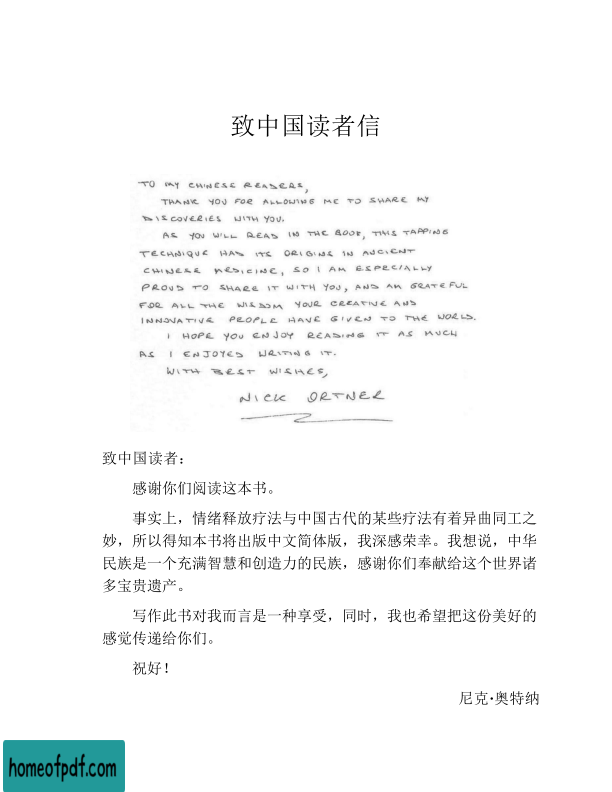 致中国读者信
TO MY CHINESE READERS,
THANK YOU FOR ALLOWING ME TO SHARE MY
DISCOVERIES WITH YOU.
AS YOU WILL READ IN THE BOOK, THIS TAPPING
TECHNIQUE HAS ITS ORIGINS IN ANCIENT
CHINESE MEDICINE, SO I AM ESPECIALLY
PROUD TO SHARE IT WITH YOU, AND AM GRATEFUL
FOR ALL THE WISDOM YOUR CREATIVE AND
INNOVATIVE PEOPLE HAVE GIVEN TO THE WORLD.
I HOPE YOU ENJOY READING IT AS MUCH
AS I ENJOYED WRITING IT.
WITH BEST WISHES,
NICK ORTNER
致中国读者：
感谢你们阅读这本书。
事实上，情绪释放疗法与中国古代的某些疗法有着异曲同工之
妙，所以得知本书将出版中文简体版，我深感荣幸。我想说，中华
民族是一个充满智慧和创造力的民族，感谢你们奉献给这个世界诸
多宝贵遗产。
写作此书对我而言是一种享受，同时，我也希望把这份美好的
感觉传递给你们。
祝好！
尼克·奥特纳
homeofpdf.com